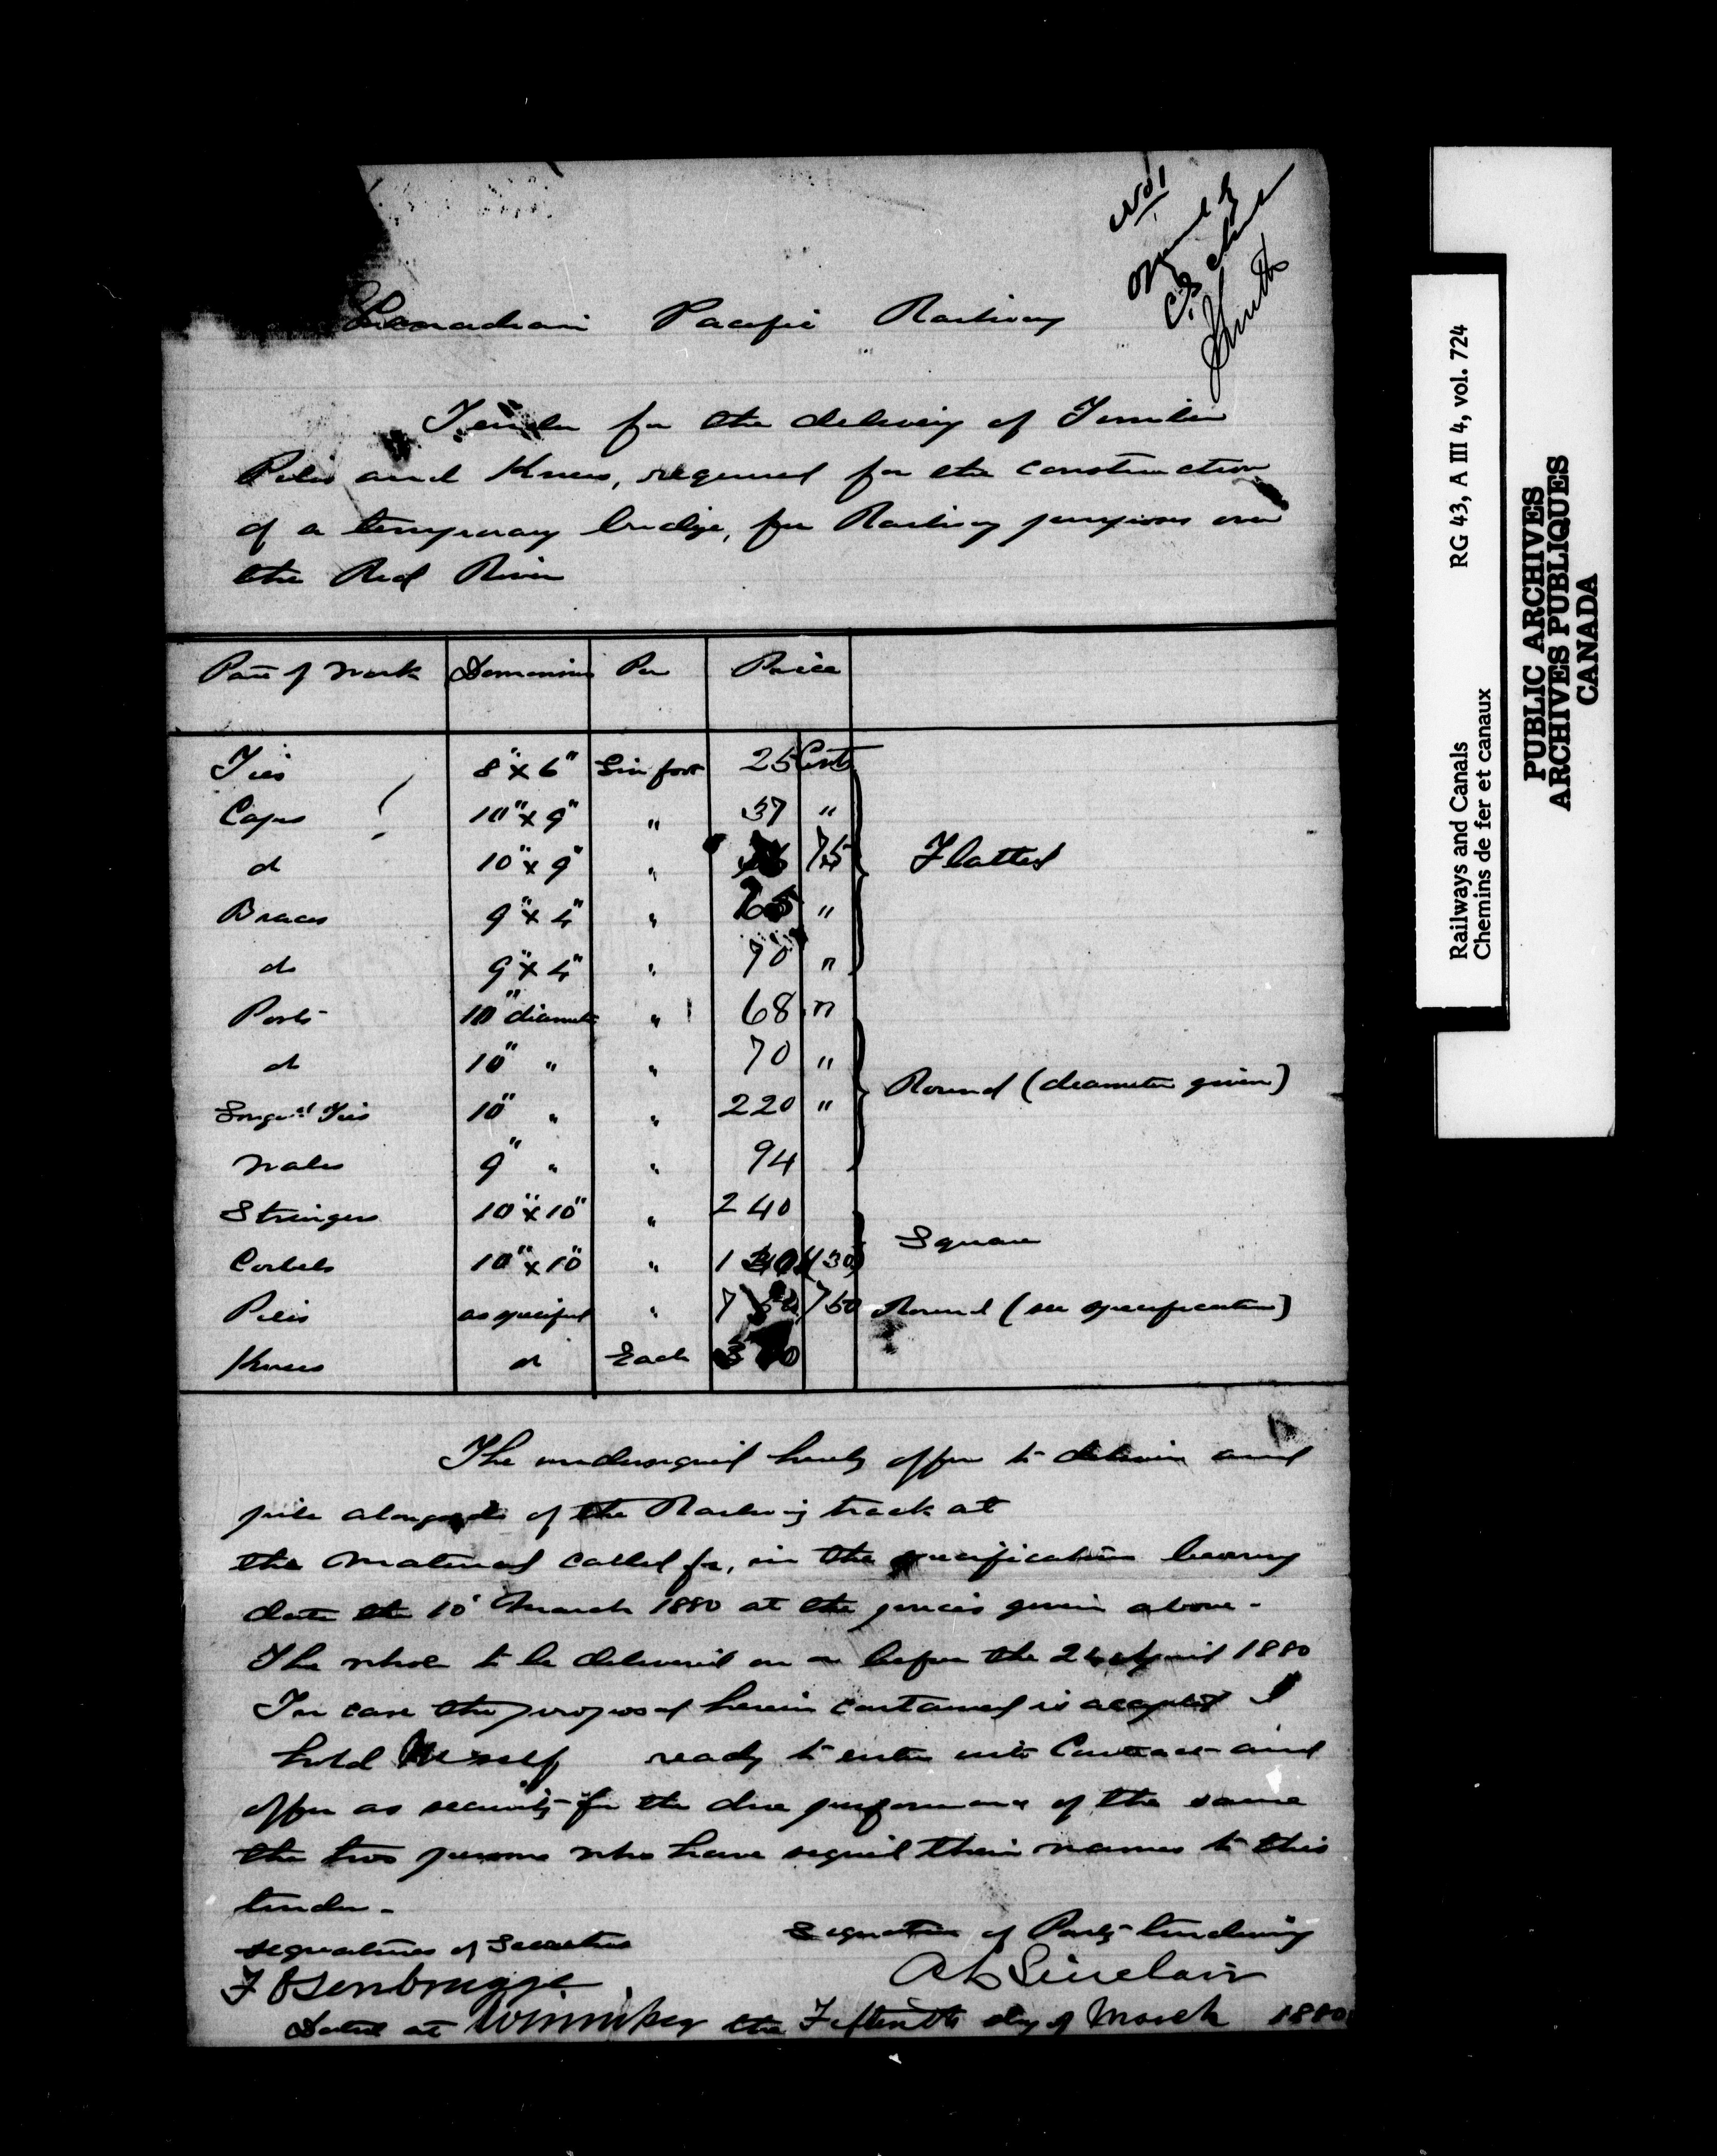 No 1
Canadian Pacific Railway
Tender for the delivery of Timber
Piles and Knees, required for the construction
of a temporary bridge, for Railway purposes over
the Red River
Part of Work Dimensions Per Price
Ties 8" x 6" Lin foot 25 Cents
Caps 10" x 9" " 37 "
do 10" x 9" " 75
Flatted
Braces 9" x 4" " 65 "
do 9" x 4" " 70 "
Posts 10" diameter " 68 "
do 10" " " 70 "
Round (diameter given)
Longl Ties 10" " " 220 "
Wales 9" " " 94
Stringers 10" x 10" " 240
Square
Corbels 10" x 10" " 1 30
Piles as specified " 7 50 Round (see specification)
Knees do Each
The undersigned hereby offer to deliver and
pile alongside of the Railway track at
the material called for, in the specification bearing
date the 10 March 1880 at the prices given above -
The whole to be delivered on or before the April 1880
In case the proposal herein contained is accepted I
hold Myself ready to enter into Contract and
offer as security for the due performance of the same
the two persons who have signed their names to this
tender -
Signatures of Securities
Signature of Party tendering
F Osenbrugge
Sinclair
Dated at Winnipeg the Fifteenth day of March 1880
Railways and Canals RG 43, A III 4, vol. 724
Chemins de fer et canaux
PUBLIC ARCHIVES
ARCHIVES PUBLIQUES
CANADA